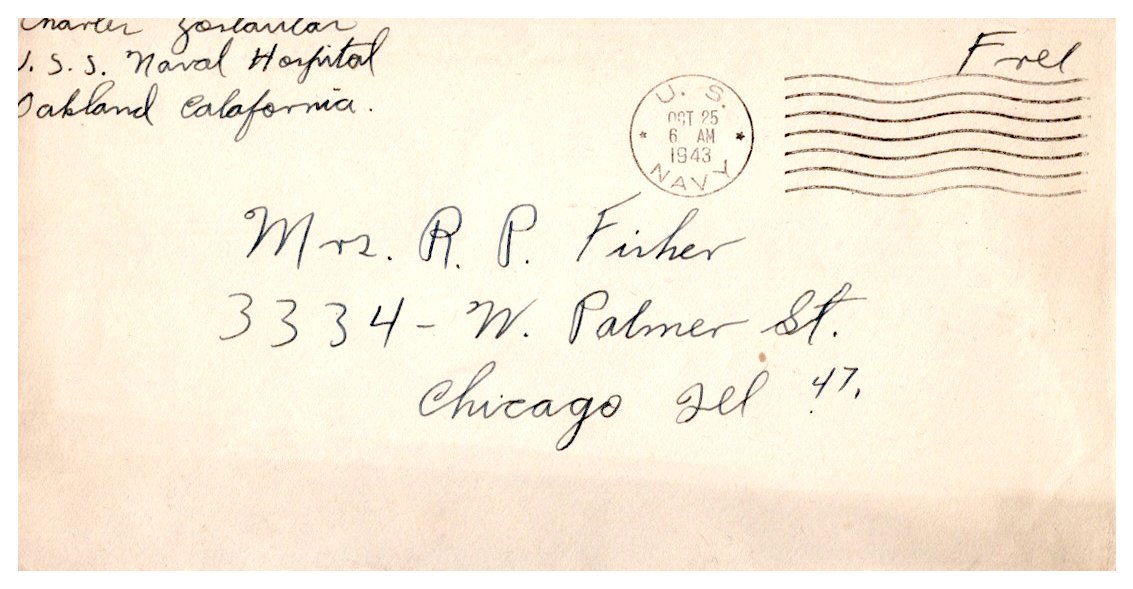 Charles
U. S. S. Naval Hospital
Oakland Calafornia.
Free
U. S. NAVY
OCT 25
6 AM
1943
Mrs. R. P. Fisher
3334 - W. Palmer St.
Chicago Ill 47.